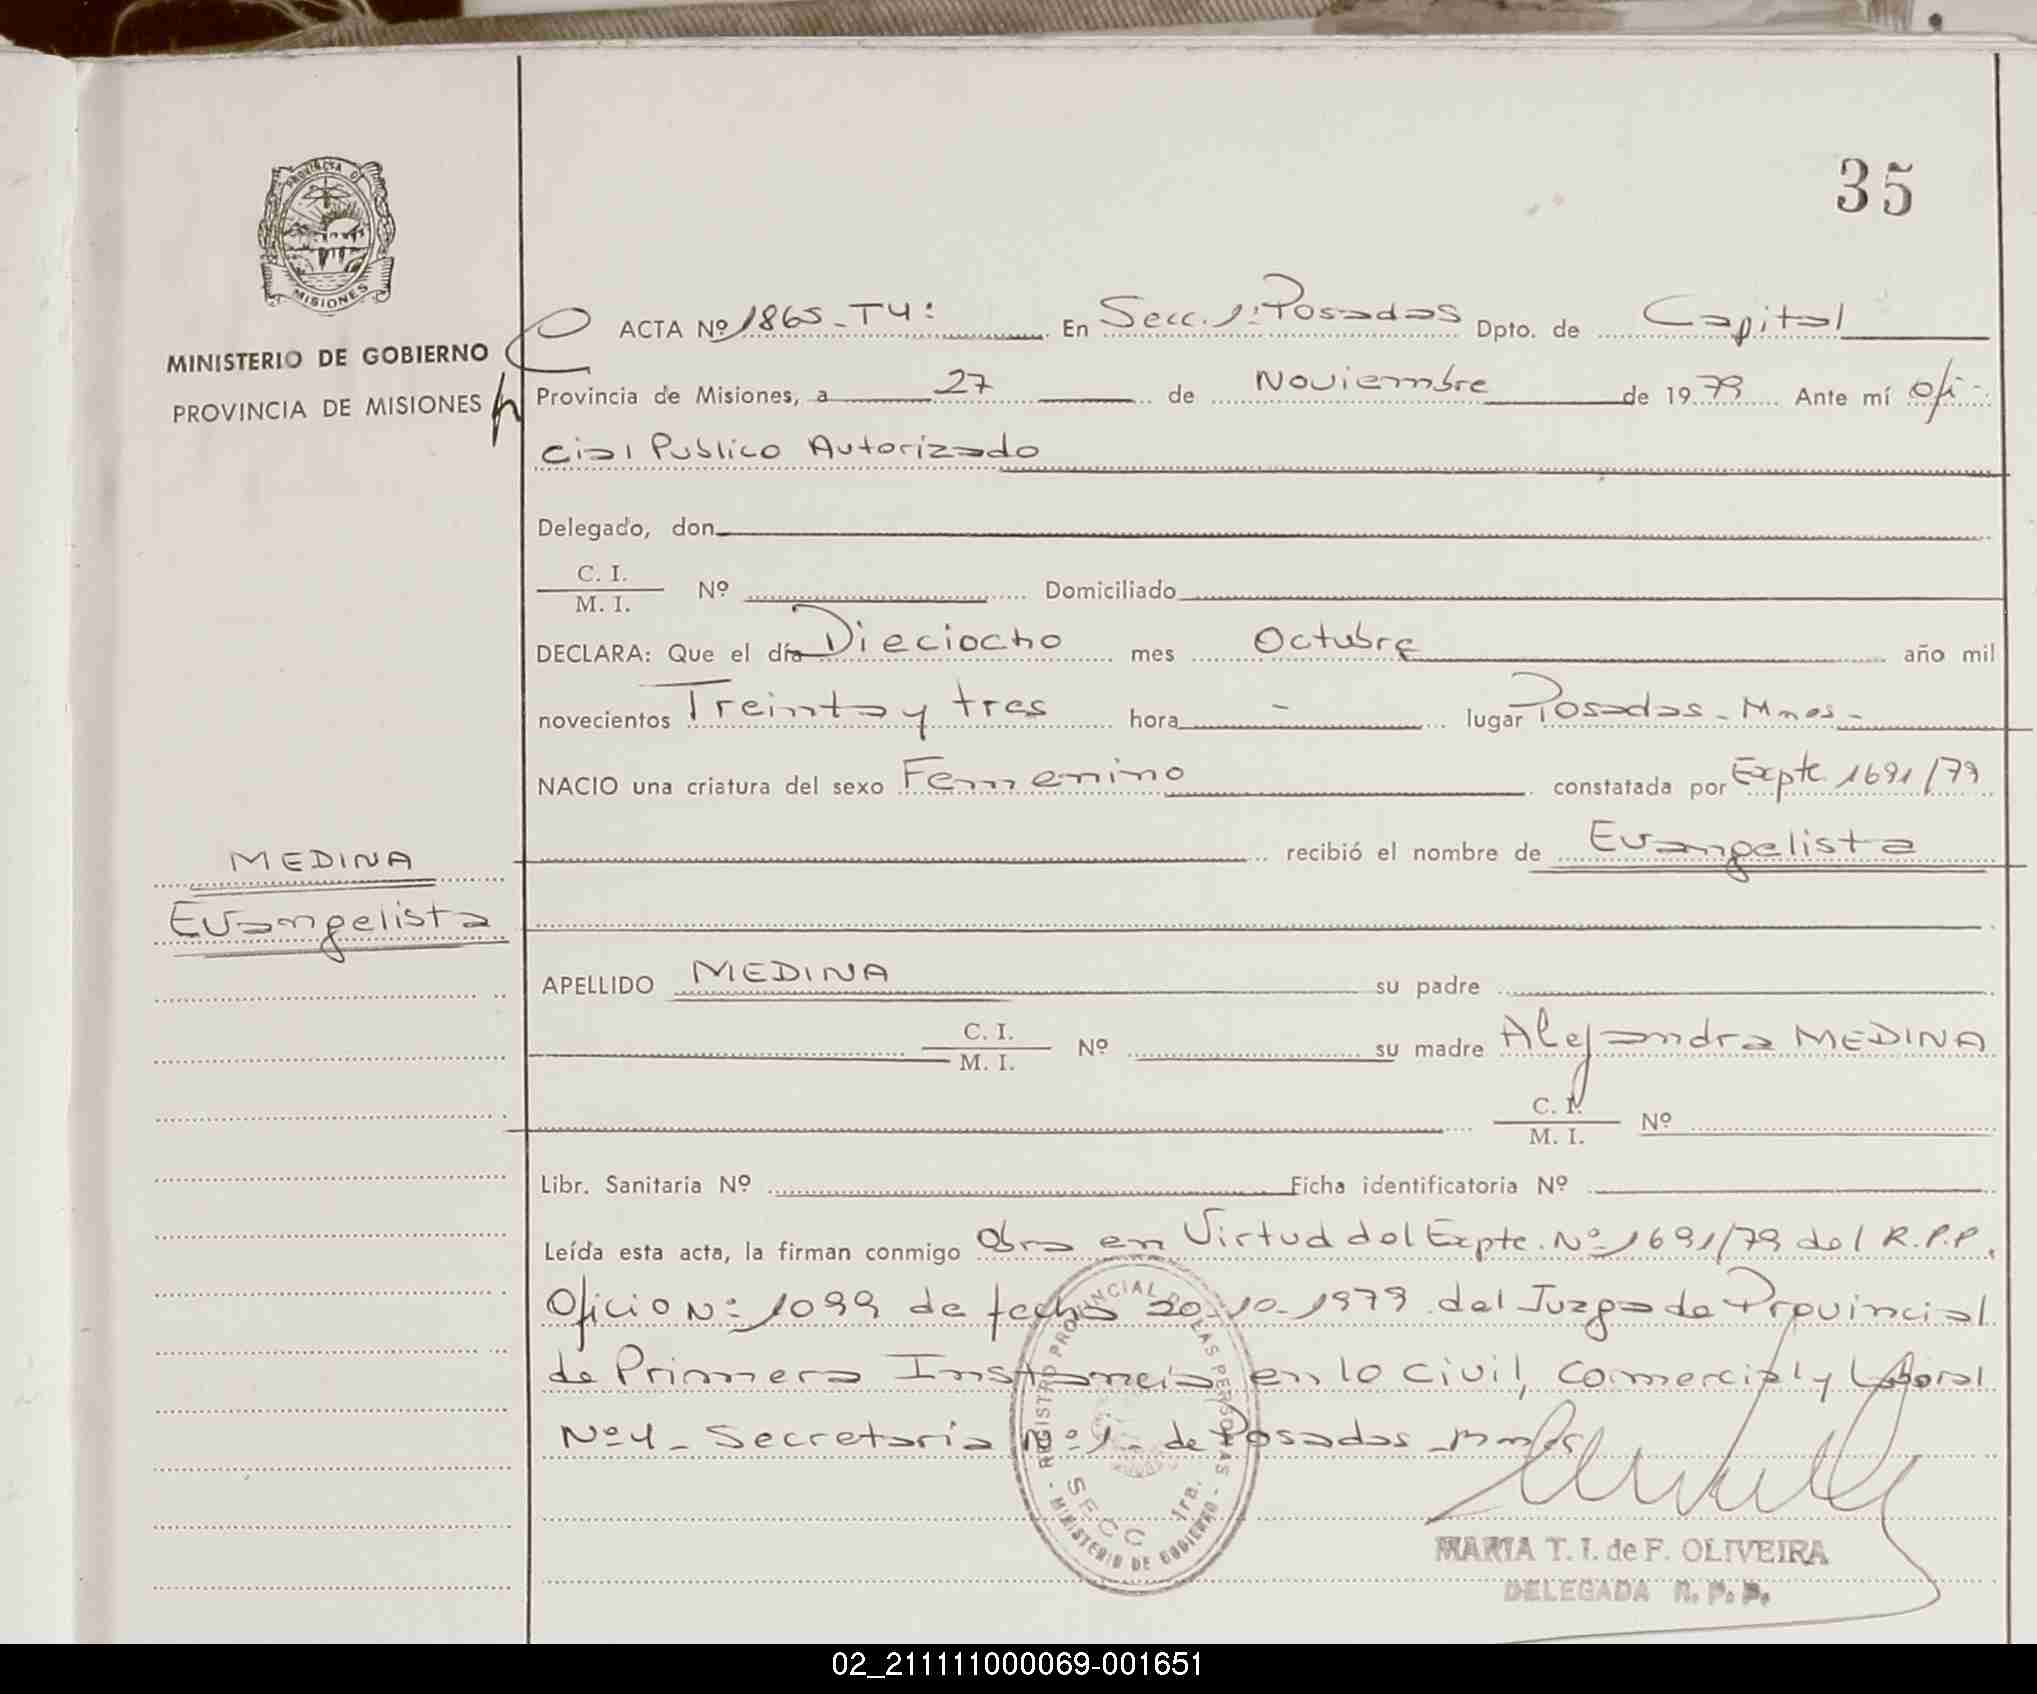 35
PROVINCIA DE
MISIONES
MINISTERIO DE GOBIERNO
PROVINCIA DE MISIONES
ACTA Nº 1865-T4: En Secc. 1ª Posadas Dpto. de Capital
Provincia de Misiones, a 27 de Noviembre de 1979 Ante mí Ofi-
cial Publico Autorizado
Delegado, don
C. I.
M. I. Nº Domiciliado
DECLARA: Que el día Dieciocho mes Octubre año mil
novecientos Treinta y tres hora - lugar Posadas - Mnes -
NACIO una criatura del sexo Femenino constatada por Expte 1691/79
recibió el nombre de Evangelista
MEDINA
Evangelista
APELLIDO MEDINA su padre
C. I.
M. I. Nº su madre Alejandra MEDINA
C. I.
M. I. Nº
Libr. Sanitaria Nº Ficha identificatoria Nº
Leída esta acta, la firman conmigo Obra en Virtud del Expte. Nº 1691/79 del R.P.P.
Oficio Nº 1099 de fecha 20-10-1979 del Juzgado Provincial
de Primera Instancia en lo Civil, Comercial y Laboral
Nº 4 - Secretaría Nº 1 - de Posadas - Mnes
REGISTRO PROVINCIAL DE LAS PERSONAS
SECC 1ra.
- MINISTERIO DE GOBIERNO -
MARIA T. I. de F. OLIVEIRA
DELEGADA R. P. P.
02_211111000069-001651